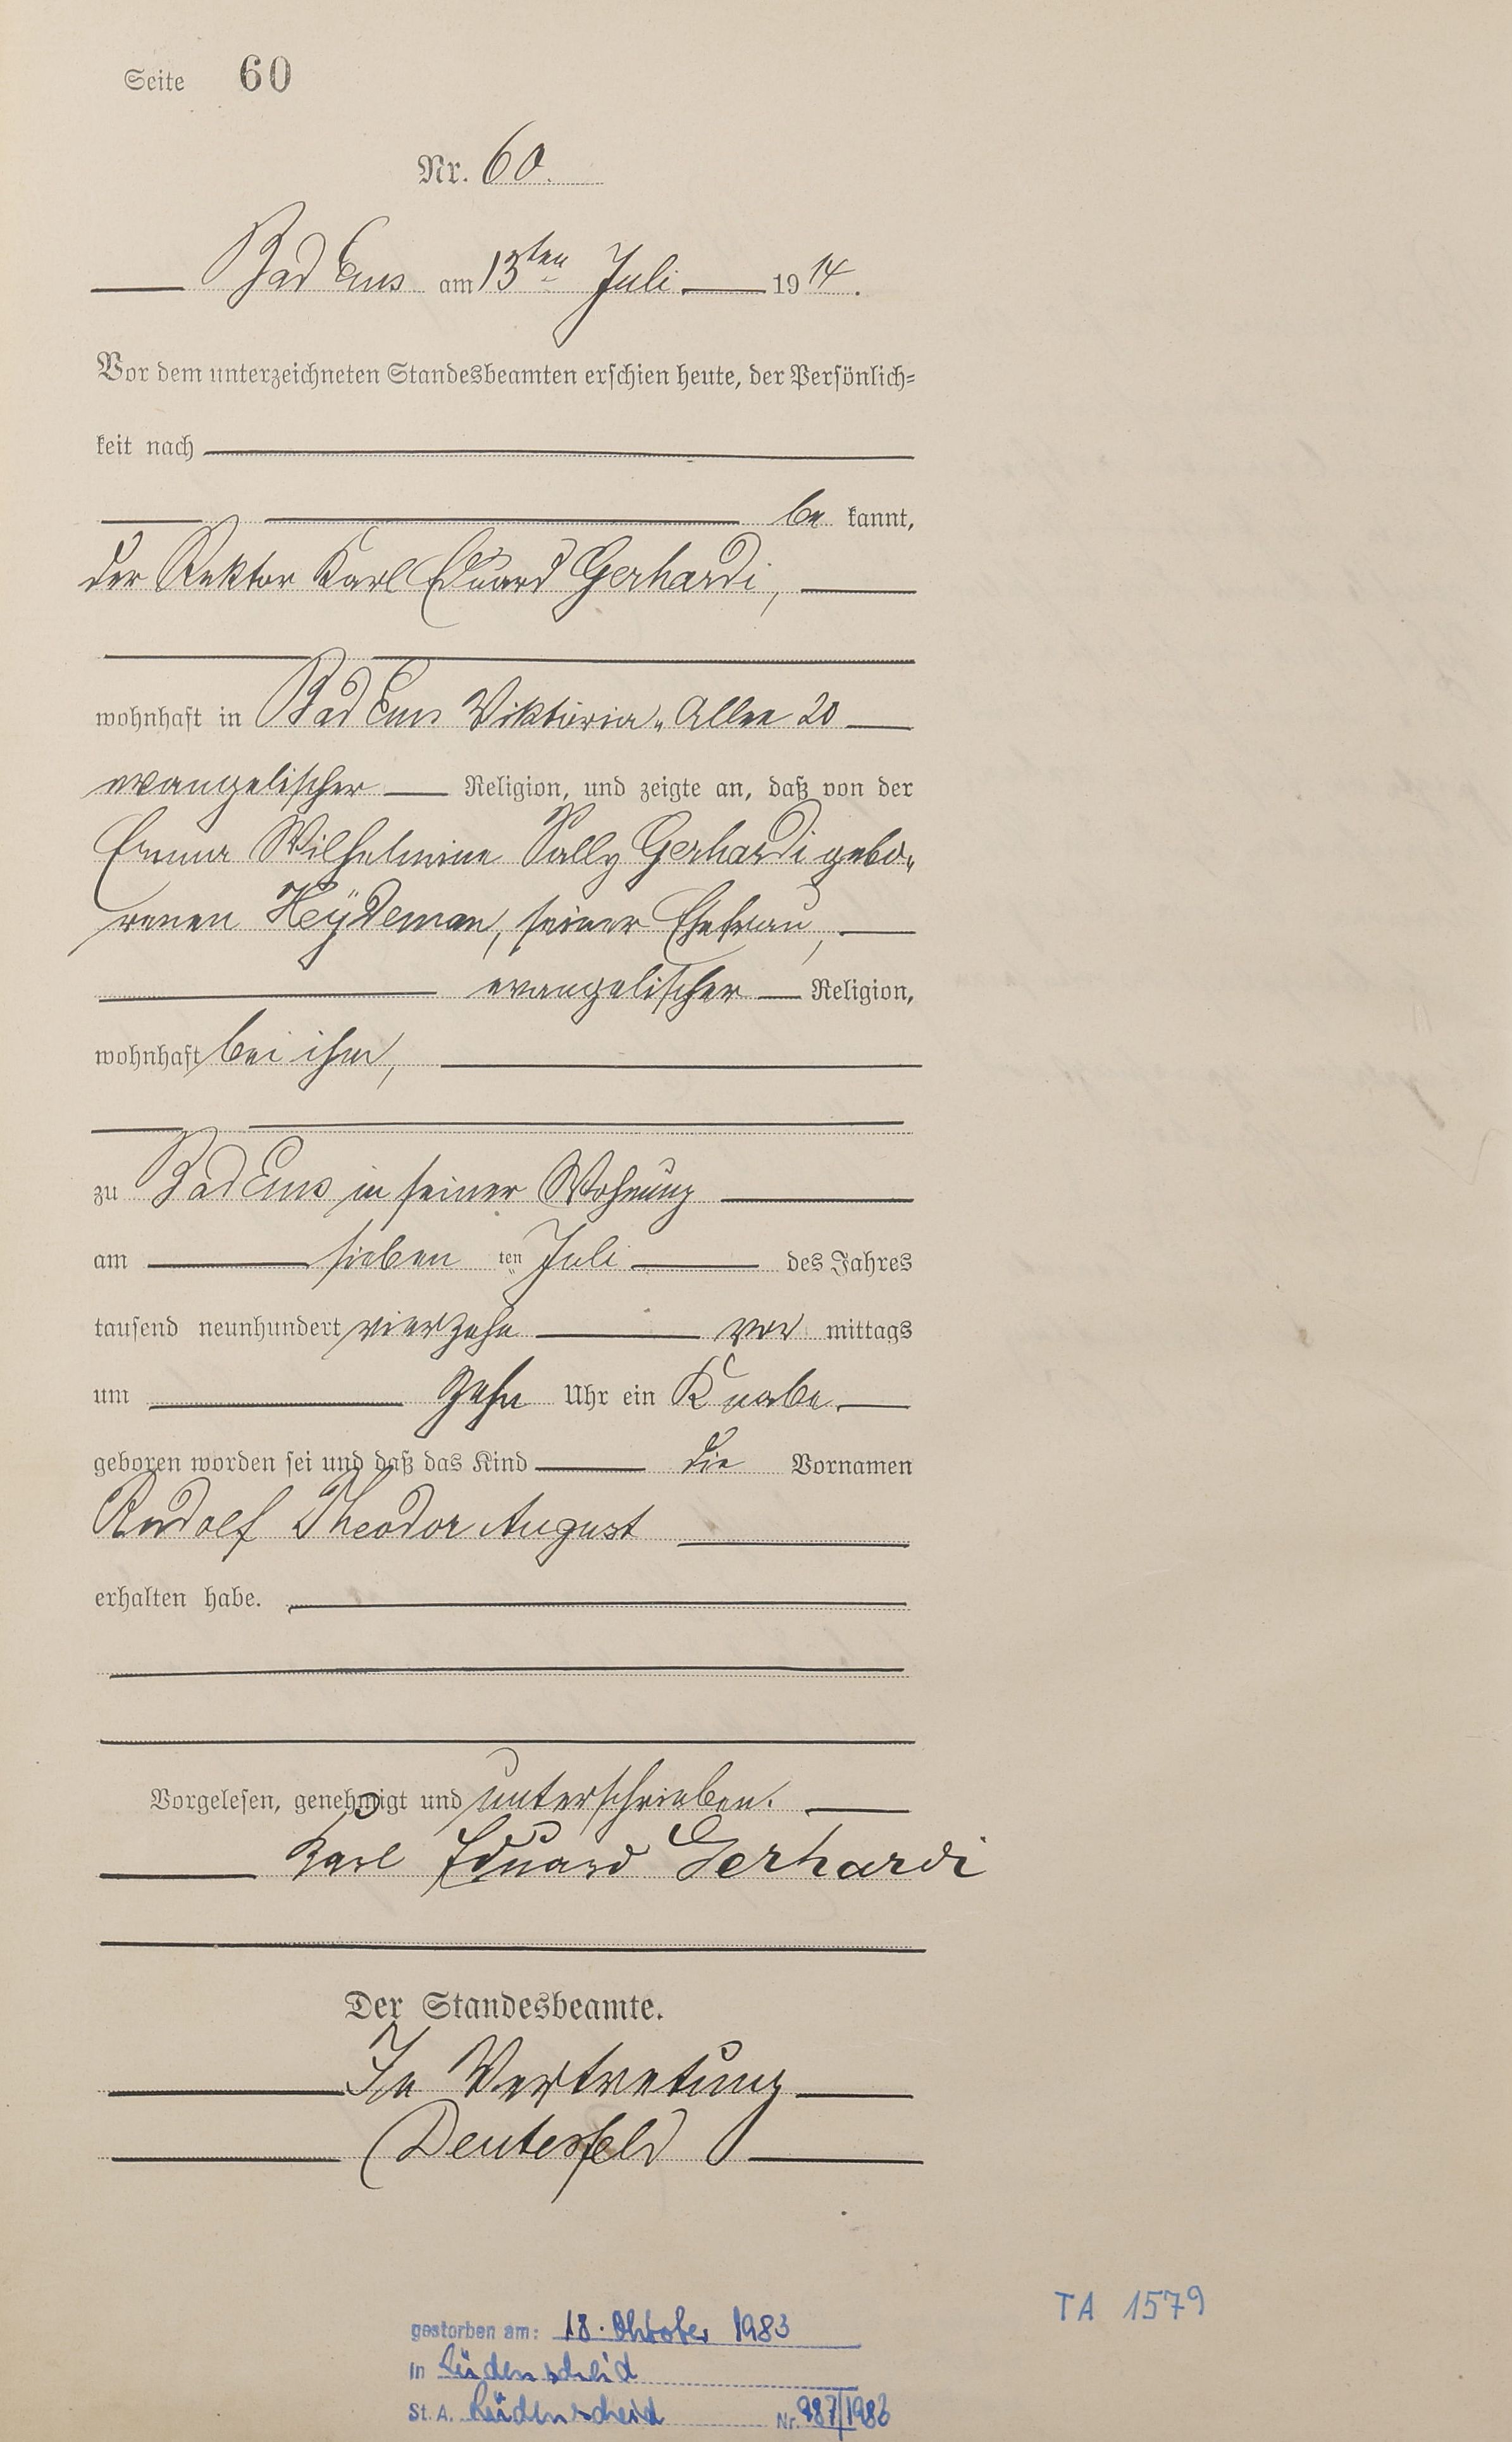 Seite 60
Nr. 60.
Bad Ems am 13ten Juli 1914.
Vor dem unterzeichneten Standesbeamten erschien heute, der Persönlich=
keit nach
be kannt,
der Rektor Karl Eduard Gerhardi,
wohnhaft in Bad Ems Viktoria-Allee 20
evangelischer Religion, und zeigte an, daß von der
Emma Wilhelmine Sally Gerhardi gebo-
renen Heÿdeman, seiner Ehefrau,
evangelischer Religion,
wohnhaft bei ihm,
zu Bad Ems in seiner Wohnung
am sieben ten Juli des Jahres
tausend neunhundert vierzehn vor mittags
um zehn Uhr ein Knabe
geboren worden sei und daß das Kind die Vornamen
Rudolf Theodor August
erhalten habe.
Vorgelesen, genehmigt und unterschrieben.
Karl Eduard Gerhardi
Der Standesbeamte.
In Vertretung
Deutesfeld
TA 1579
gestorben am: 18. Oktober 1983
in Lüdenscheid
St. A. Lüdenscheid Nr. 987/1983